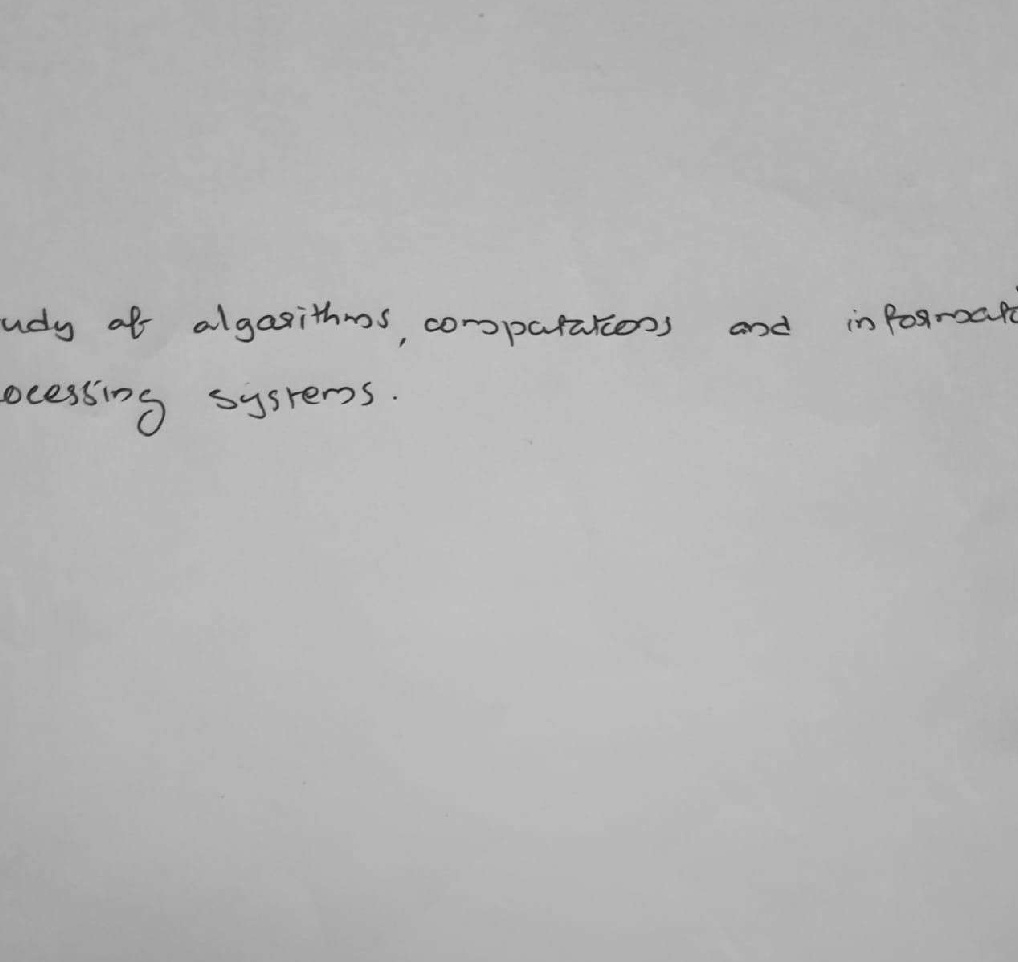 udy of algorithms, computations and informati
ocessing systems.